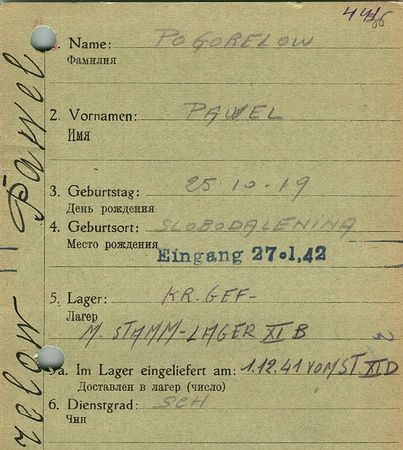 44
1. Name: POGORELOW
Фамилия
2. Vornamen: PAWEL
Имя
3. Geburtstag: 25·10·19
День рождения
4. Geburtsort: SLOBODALENINA
Место рождения
Eingang 27.1.42
5. Lager: KR. GEF-
Лагер
M. STAMM-LAGER XI B
5a. Im Lager eingeliefert am: 1.12.41 VOM ST XI D
Доставлен в лагер (число)
6. Dienstgrad: SCH
Чин
relow Pawel